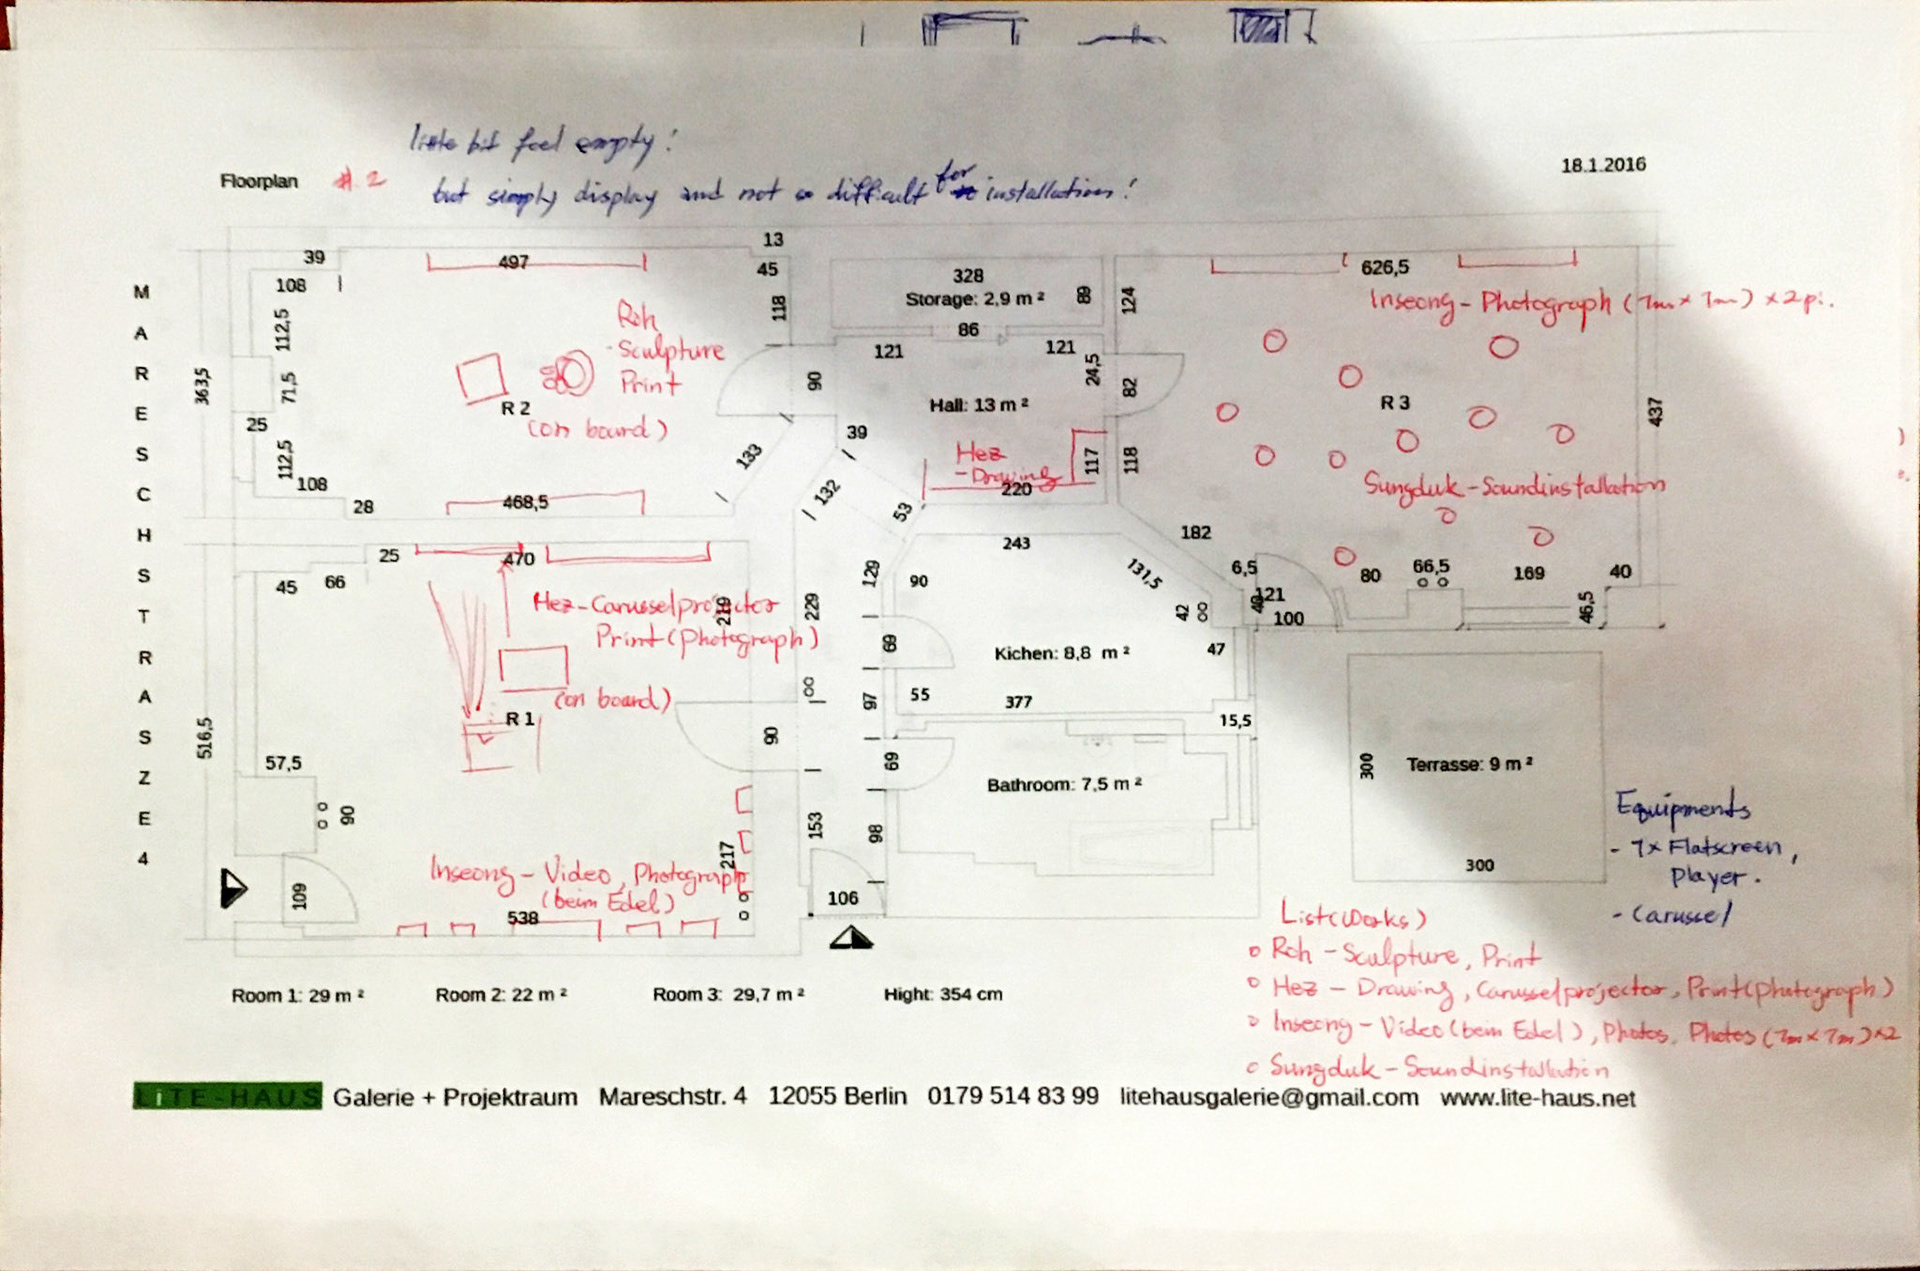 little bit feel empty!
Floorplan #.2
18.1.2016
but simply display and not so difficult for installation!
MARESCHSTRASZE 4
39
497
13
45
108
112,5
118
363,5
71,5
25
112,5
108
28
468,5
133
90
Roh
- Sculpture
Print
R 2
(on board)
328
Storage: 2,9 m ²
89
86
121
121
24,5
Hall: 13 m ²
39
Hez
- Drawing
117
220
132
53
124
82
118
626,5
Inseong - Photograph (7m x 7m) x 2
R 3
437
Sungduk - Soundinstallation
182
6,5
121
40
100
80
66,5
169
40
46,5
25
470
45
66
219
229
129
Hez - Carusselprojector
Print (Photograph)
(on board)
R 1
516,5
57,5
90
90
109
217
153
Inseong - Video, Photograph
(beim Edel)
538
106
243
90
131,5
42
69
Kichen: 8,8 m ²
47
55
377
97
15,5
69
Bathroom: 7,5 m ²
98
300
Terrasse: 9 m ²
300
Equipments
- 7x Flatscreen,
Player.
- Carussel
List (Works)
o Roh - Sculpture, Print
o Hez - Drawing, Carusselprojector, Print (photograph)
o Inseong - Video (beim Edel), Photos, Photos (7m x 7m) x2
o Sungduk - Soundinstallation
Room 1: 29 m ² Room 2: 22 m ² Room 3: 29,7 m ² Hight: 354 cm
LiTE-HAUS Galerie + Projektraum Mareschstr. 4 12055 Berlin 0179 514 83 99 litehausgalerie@gmail.com www.lite-haus.net